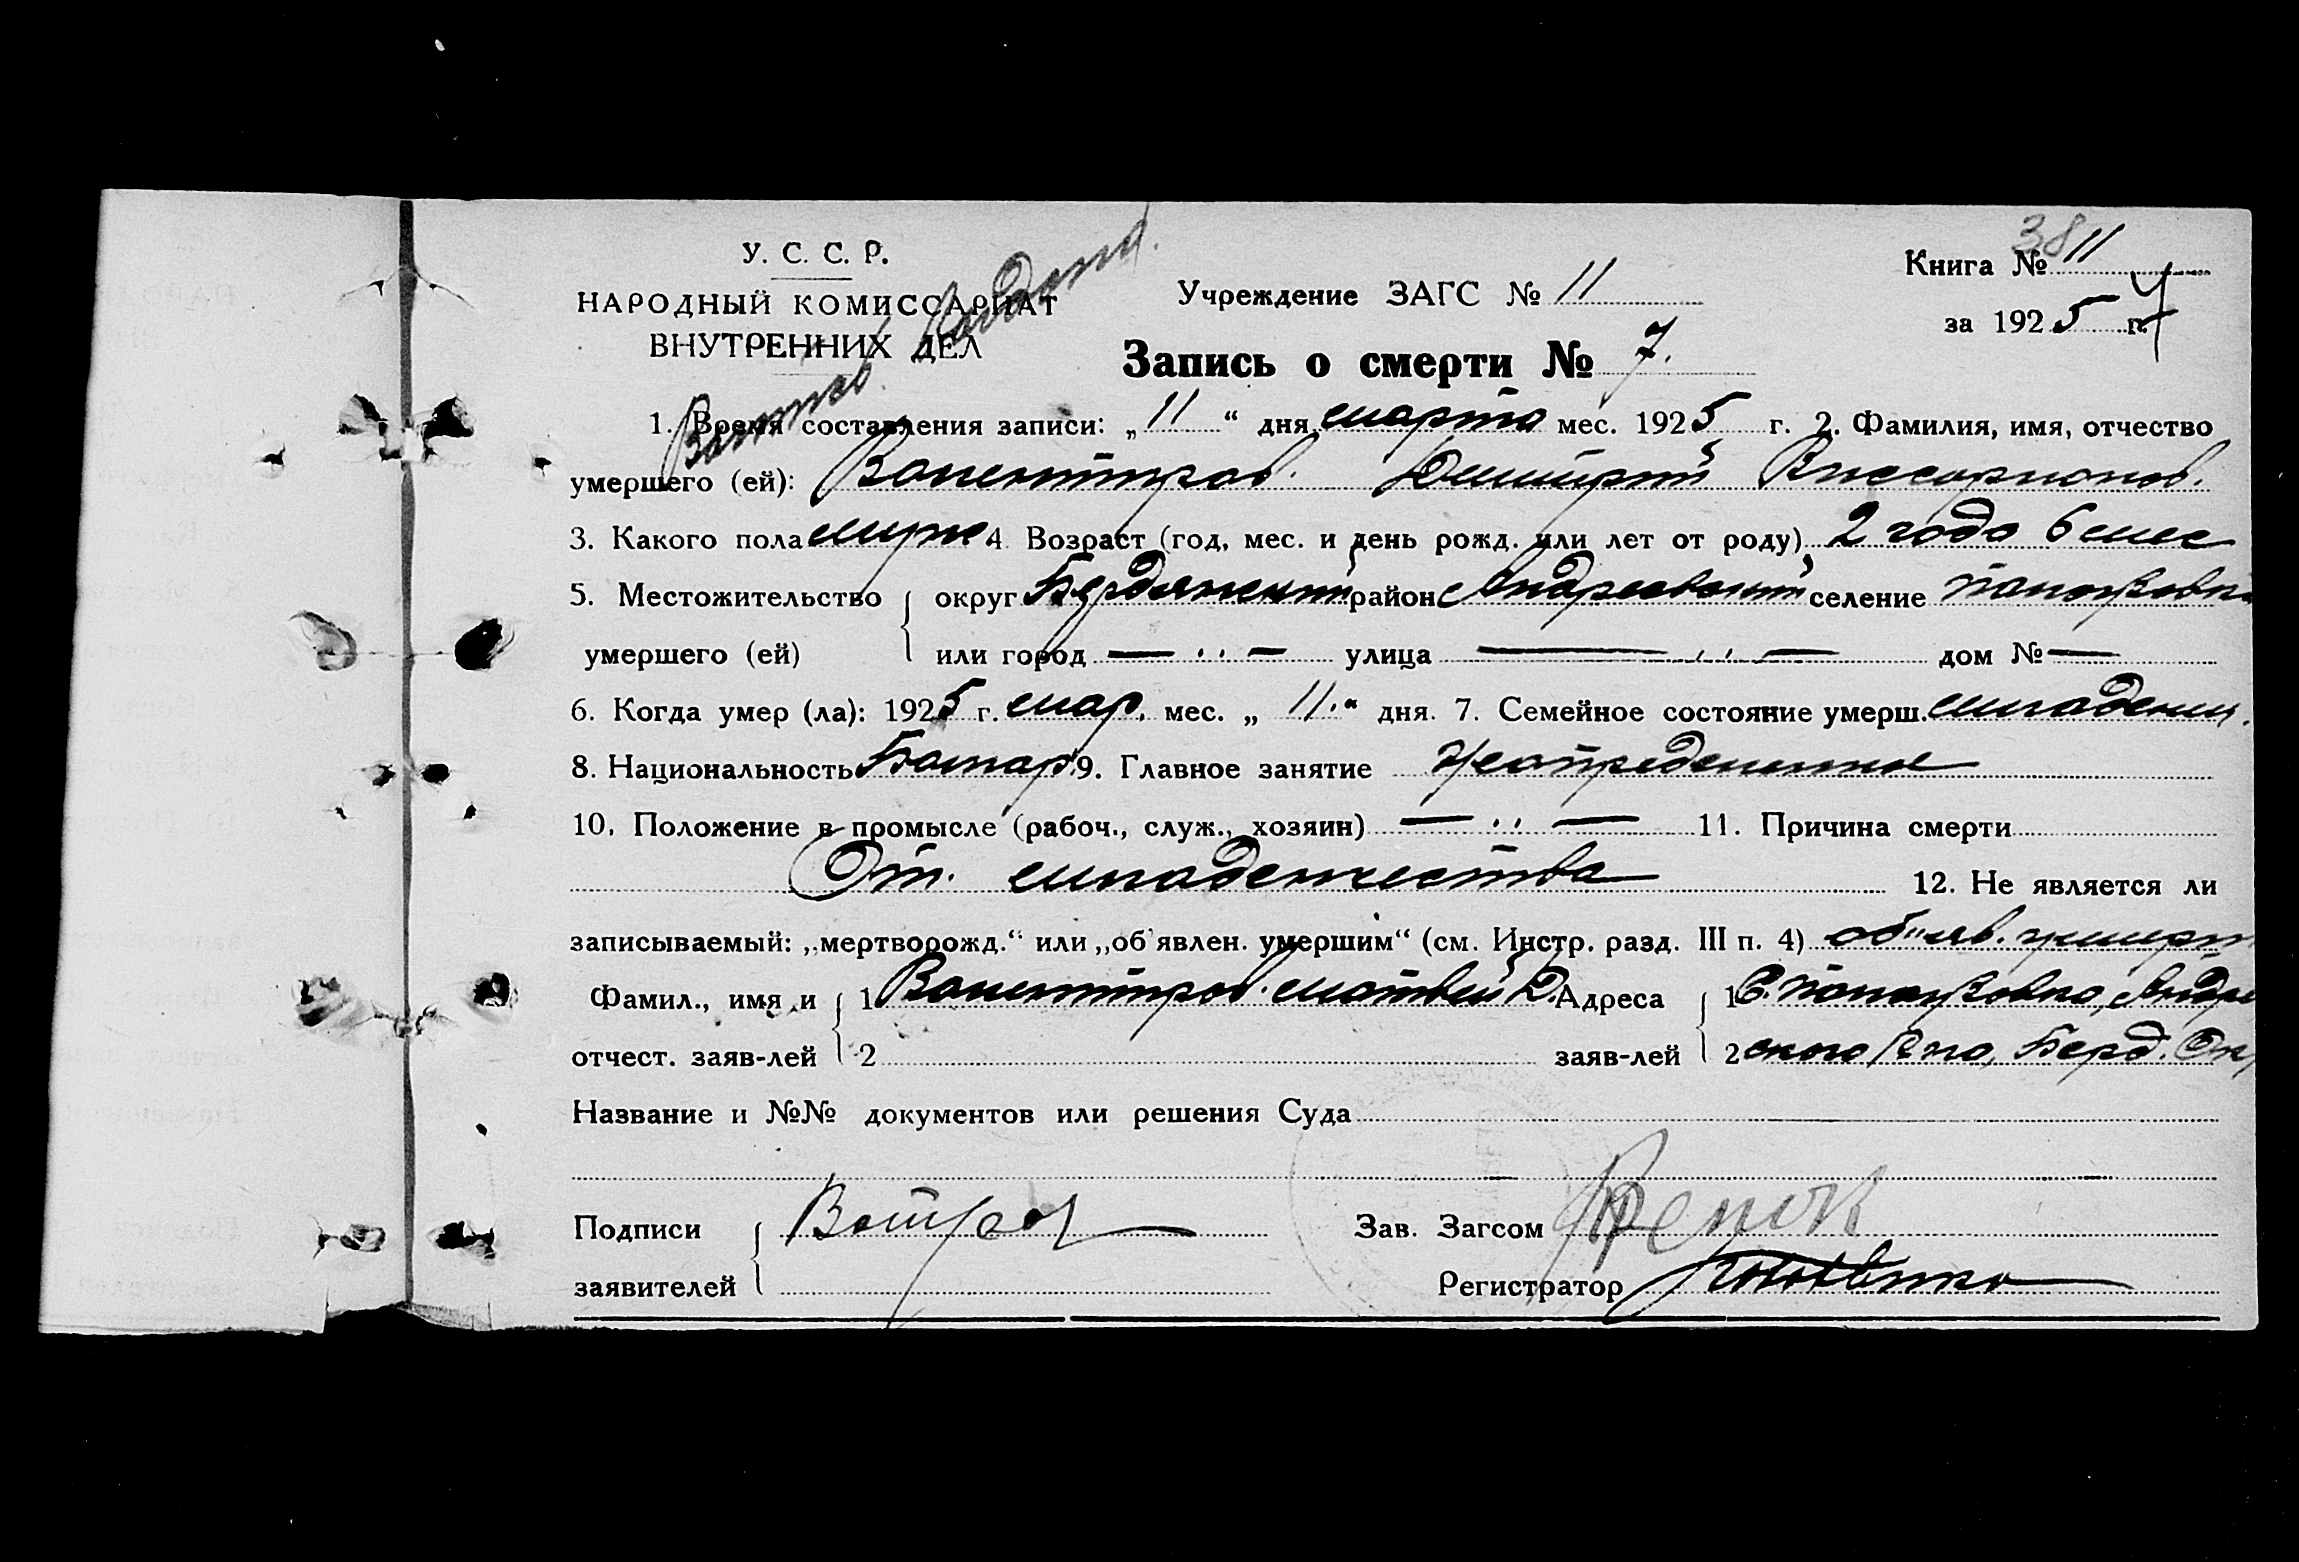 У. С. С. Р.
НАРОДНЫЙ КОМИССАРИАТ
ВНУТРЕННИХ ДЕЛ
Учреждение ЗАГС № 11
Книга № 11
38
за 1925 г.
Запись о смерти № 7.
1. Время составления записи: „11“ дня марта мес. 1925 г. 2. Фамилия, имя, отчество
умершего (ей): Димитрий Виссарионов.
3. Какого пола муж 4. Возраст (год, мес. и день рожд. или лет от роду) 2 года 6 мес
5. Местожительство { округ Бердянский район Андреевский селение
умершего (ей) или город — ‥ — улица — ‥ — дом № —
6. Когда умер (ла): 1925 г. мар. мес. „11.“ дня. 7. Семейное состояние умерш. младенец.
8. Национальность Болгар. 9. Главное занятие
10. Положение в промысле (рабоч., служ., хозяин) — ‥ — 11. Причина смерти
От младенчества 12. Не является ли
записываемый: „мертворожд.“ или „об'явлен. умершим“ (см. Инстр. разд. III п. 4) об"яв. умерш.
Фамил., имя и { 1 Матвей Д. Адреса { 1 С.
отчест. заяв-лей 2 заяв-лей 2 ского Р-на, Берд. Окр
Название и №№ документов или решения Суда
Подписи
Зав. Загсом
заявителей
Регистратор